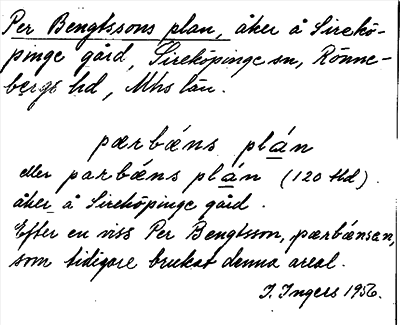 Per Bengtssons plan, åker å Sirekö-
pinge gård, Sireköpinge sn, Rönne-
bergs hd, Mhs län.
pærbǽns plán
eller parbǽns plán (120 tld).
åker å Sireköpinge gård.
Efter en viss Per Bengtsson, pærbǽnsən,
som tidigare brukat denna areal.
I. Ingers 1956.